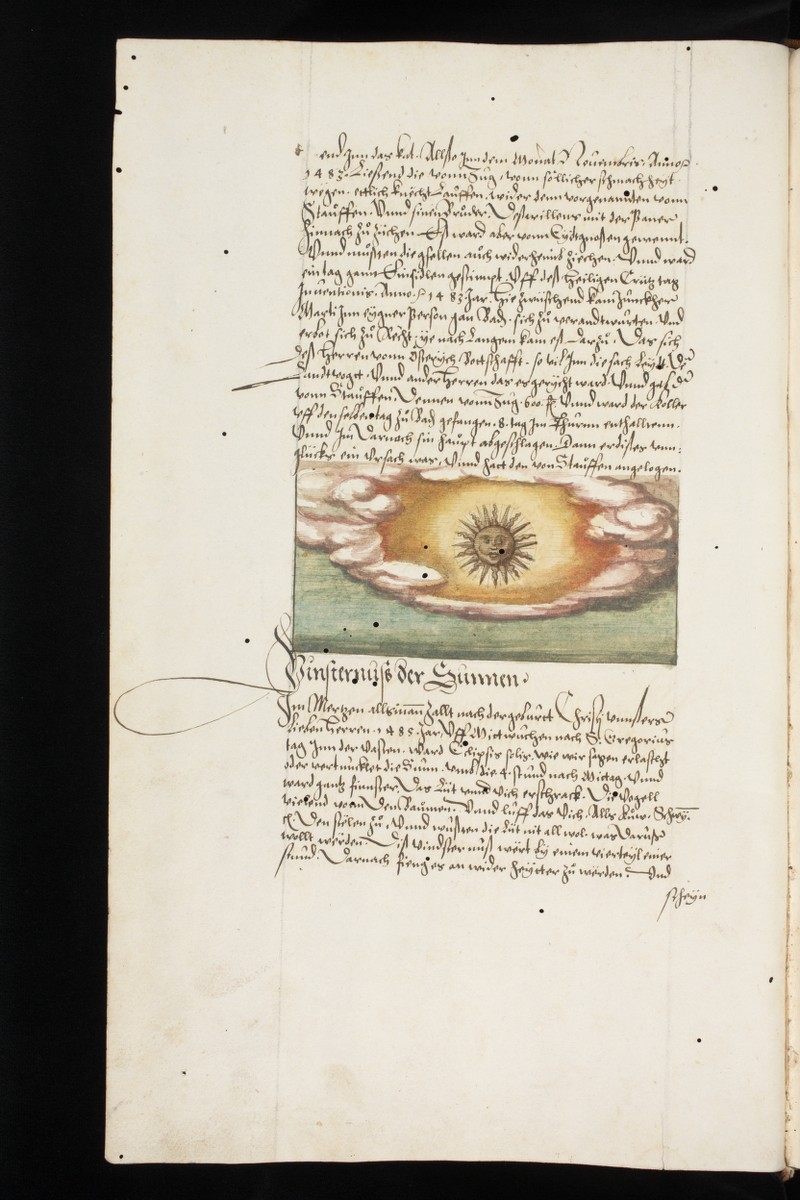 end Inn das kat. Allso Inn dem Monat Nouembris. Anno
1483. Liessend die vonn Zug, vonn söllicher schmach heyt
wegen. ettlich knecht Lauffen. wider denn vorgenanten vonn
Stauffen. Vnnd sinen Brůder. Deßwillens mit der Paner
hinnach zů ziechen. Eß ward aber vonn Eydtgnoßen gewennt.
Vnnd můßten die gsellen auch widerheimb ziechen. Vnnd ward
ein tag gann Einsidlen gestimpt. Vff deß Heiligen Crütz tag
Inuentionis. Anno 1483 Jar. Hiezwüschend kam Junckher
Marti Inn eygner Person gan Bad. sich zů verandtwurten. Vnd
erbot sich zů Recht. ye nach Langem kam es darzů. Das sich
deß Herren vonn Osterych Bottschafft. so vil Inn die sach Leyt. Der
Landtvogt. Vnnd ander Herren das er gericht ward. Vnnd gab der
vonn Stauffen. Dennen vonn Zug. 600. Vnnd ward der Koller
vff den selben tag zů Bad gefangen. 8. tag Im Thurnn enthalltenn.
Vnnd Im Darnach sin haupt abgeschlagen. Dann er dises vnn-
glücks ein Vrsach was, Vnnd hatt den von Stauffen angelogen.
Vinsternuß der Sunnen.
Im Mertzen. alls mann zallt nach der geburt Christy vnnsers
lieben Herren. 1485. Jar. Vff Mictwuchen nach S. Gregorius
tag Inn der Vasten. ward Eclipsis solis. wie wir sagen erlascht
oder vertuncklet die Sunn. vmb die 4. stund nach Mittag. Vnnd
ward gantz finnster. Das Lüt vnnd Vich erschrack. Die Vogell
vielend vonn Den Baümen. Vnnd luff das Vich. Alls Küw. Schwy.
Den stelen zů. Vnnd wußten die Lüt nit all wol. was Daruß
wollt werden. Diß vindsternuß wert by einem vierteyl einer
stund. Darnach fieng es an wider heytter zů werden. Vnd
scheyn